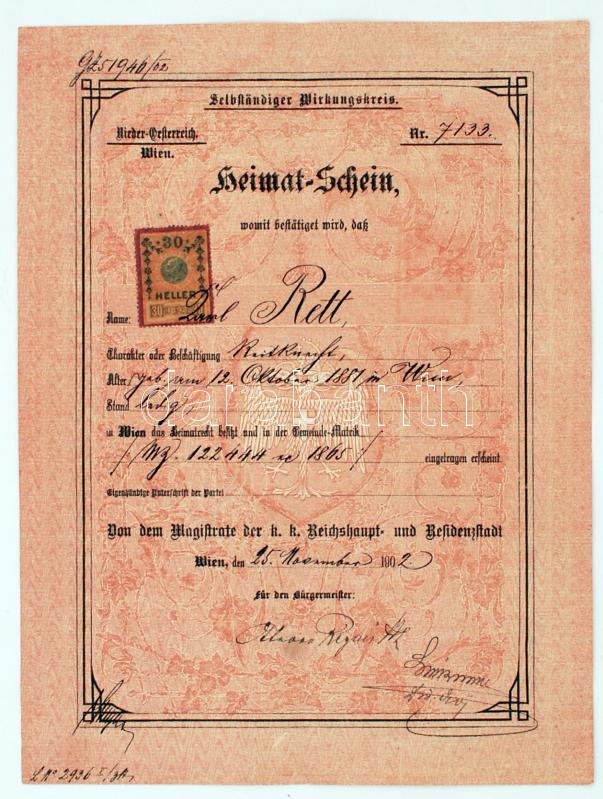 GZ 51946/02
Selbständiger Wirkungskreis.
Nieder-Oesterreich.
Nr. 7133.
Wien.
Heimat-Schein,
womit bestätiget wird, daß
30
HELLER
30
Name: Karl Rett,
Charakter oder Beschäftigung Reitknecht,
Alter, geb. am 12. Oktober 1851 in Wien,
Stand ledig,
darabanth
in Wien das Heimatrecht besitzt und in der Gemeinde-Matrik
122444 1865 eingetragen erscheint.
Eigenhändige Unterschrift der Partei
Von dem Magistrate der k. k. Reichshaupt- und Residenzstadt
Wien, den 25. November 1902.
Für den Bürgermeister:
2936